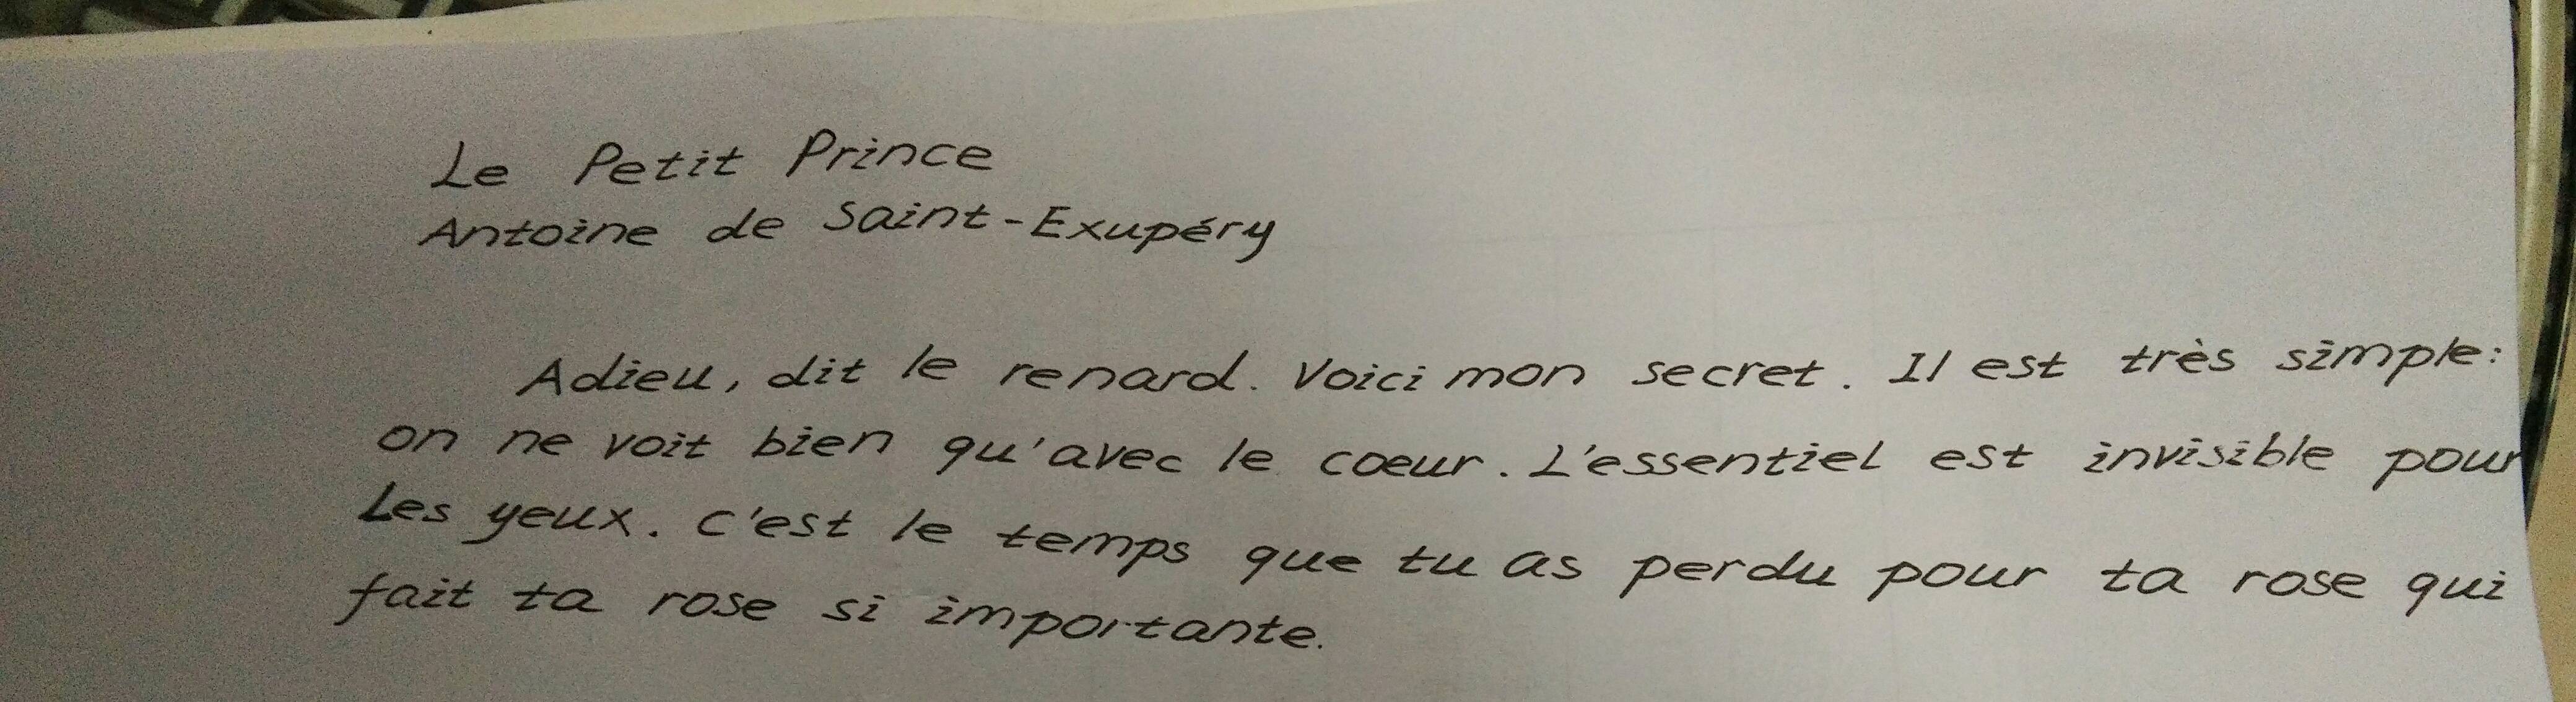 Le Petit Prince
Antoine de Saint-Exupéry
Adieu, dit le renard. Voici mon secret. Il est très simple:
on ne voit bien qu'avec le cœur. L'essentiel est invisible pour
Les yeux. C'est le temps que tu as perdu pour ta rose qui
fait ta rose si importante.